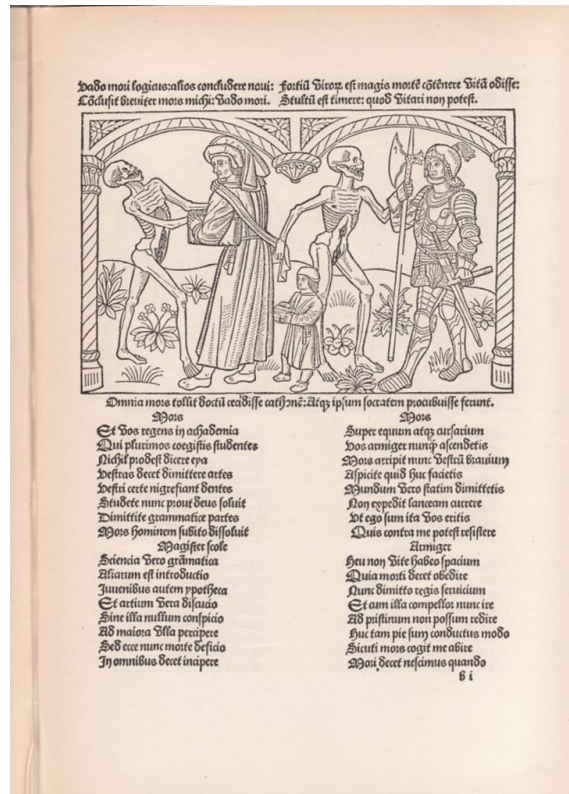 Vado mori logicus: alios concludere novi:
Cōclusit breviter mors michi: Vado mori.
fortiū virorꝫ est magis mortē cōtēnere Vitā odisse:
Stultū est timere: quod Vitari non potest.
Omnia mors tollit doctū cecidisse cathonē: Atqꝫ ipsum socratem procubuisse ferunt.
Mors
Et vos regens in achademia
Qui plurimos coegistis studentes
Nichil prodest dicere eya
Vestras decet dimittere artes
Vestri certe nigrefiant dentes
Studete nunc prout deus soluit
Dimittite grammatice partes
Mors hominem subito dissoluit
Magister scole
Sciencia vero grāmatica
Aliarum est introductio
Juvenibus autem ypotheca
Et artium vera discucio
Sine illa nullum conspicio
Ad maiora Vlla percipere
Sed ecce nunc morte deficio
In omnibus decet incipere
Mors
Super equum atqꝫ cursarium
Vos armiger nunqꝫ ascendetis
Mors arripit nunc Vestrū bravium
Aspicite quid huc facietis
Mundum Vero statim dimittetis
Non expedit lanceam currere
Vt ego sum ita Vos eritis
Quis contra me potest resistere
Armiger
Heu non Vite habeo spacium
Quia morti decet obedire
Nunc dimitto regis seruicium
Et cum illa compellor nunc ire
Ad pristinum non possum redire
Huc tam pie sum conductus modo
Sicuti mors cogit me abire
Mori decet nescimus quando
b i